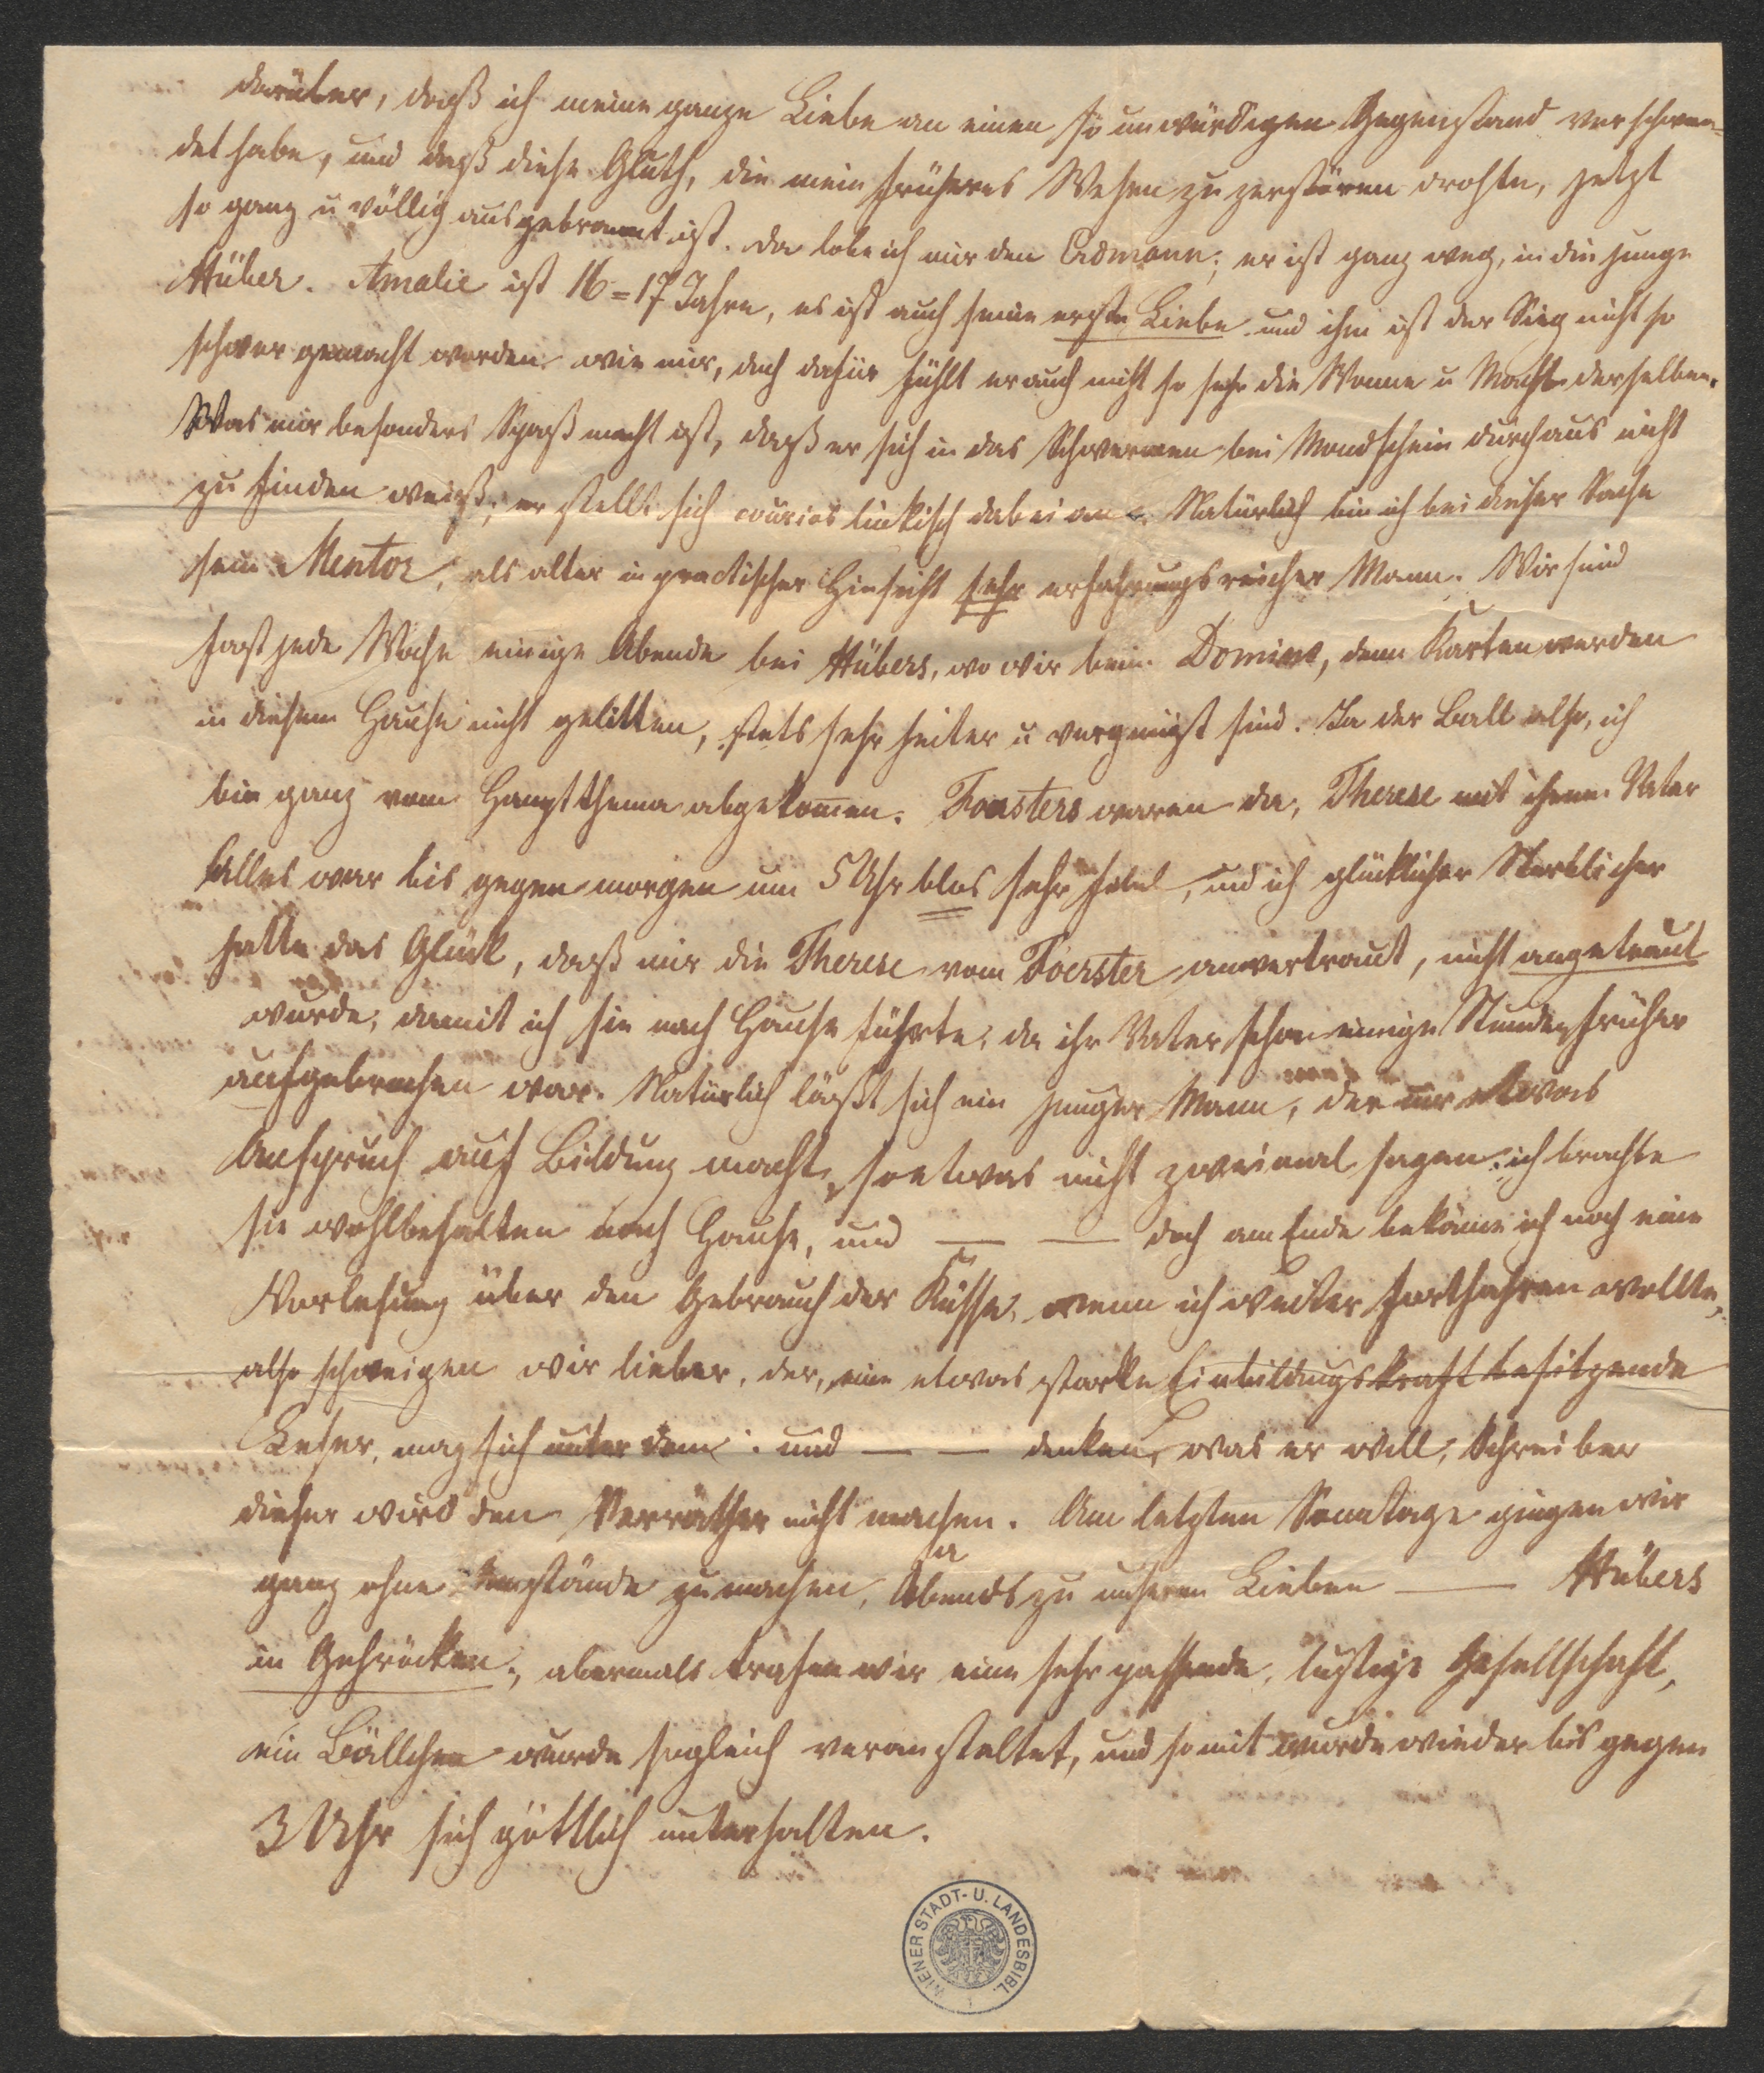 darüber, daß ich meine ganze Liebe an einen so unwürdigen Gegenstand verschwen=
det habe, und daß diese Gluth, die mein früheres Wesen zu zerstören drohte, jetzt
so ganz u völlig ausgebrannt ist. Da lobe ich mir den Erdmann; er ist ganz weg, in die junge
Hüber. Amalie ist 16=17 Jahre, es ist auch seine erste Liebe und ihm ist der Sieg nicht so
schwer gemacht worden wie mir, doch dafür fühlt er auch nicht so sehr die Wonne u Macht derselben.
Was mir besonders Spaß macht ist, daß er sich in das Schwärmen bei Mondschein durchaus nicht
zu finden weiß; er stellt sich courios linkisch dabei an. Natürlich bin ich bei dieser Sache
sein Mentor, als alter in practischer Hinsicht sehr erfahrungsreicher Mann. Wir sind
fast jede Woche einige Abende bei Hübers, wo wir beim Domino, denn Karten werden
in diesem Hause nicht gelitten, stets sehr heiter u vergnügt sind. Ja der Ball also, ich
bin ganz vom Hauptthema abgekommen. Foersters waren da, Therese mit ihrem Vater
Alles war bis gegen morgen um 5 Uhr blos sehr fidel, und ich glücklicher Sterblicher
hatte das Glück, daß mir die Therese vom Foerster anvertraut, nicht angetraut
wurde, damit ich sie nach Hause führte, da ihr Vater schon einige Stunden früher
aufgebrochen war. Natürlich läßt sich ein junger Mann, der nur etwas
Anspruch auf Bildung macht, so etwas nicht zweimal sagen; ich brachte
sie wohlbehalten nach Hause, und — — doch am Ende bekäme ich noch eine
Vorlesung über den Gebrauch der Küsse, wenn ich weiter fortfahren wollte,
also schweigen wir lieber, der, eine etwas starke Einbildungskraft besitzende
Leser, mag sich unter dem : und — — denken, was er will, Schreiber
dieses wird den Verräther nicht machen. Am letzten Sonntage gingen wir
ganz ohne Umstände zu machen, Abends zu unseren Lieben — Hübers
in Gehröcken, abermals trafen wir eine sehr passende, lustige Gesellschaft,
ein Bällchen wurde sogleich veranstaltet, und somit wurde wieder bis gegen
3 Uhr sich göttlich unterhalten.
WIENER STADT- U. LANDESBIBL.